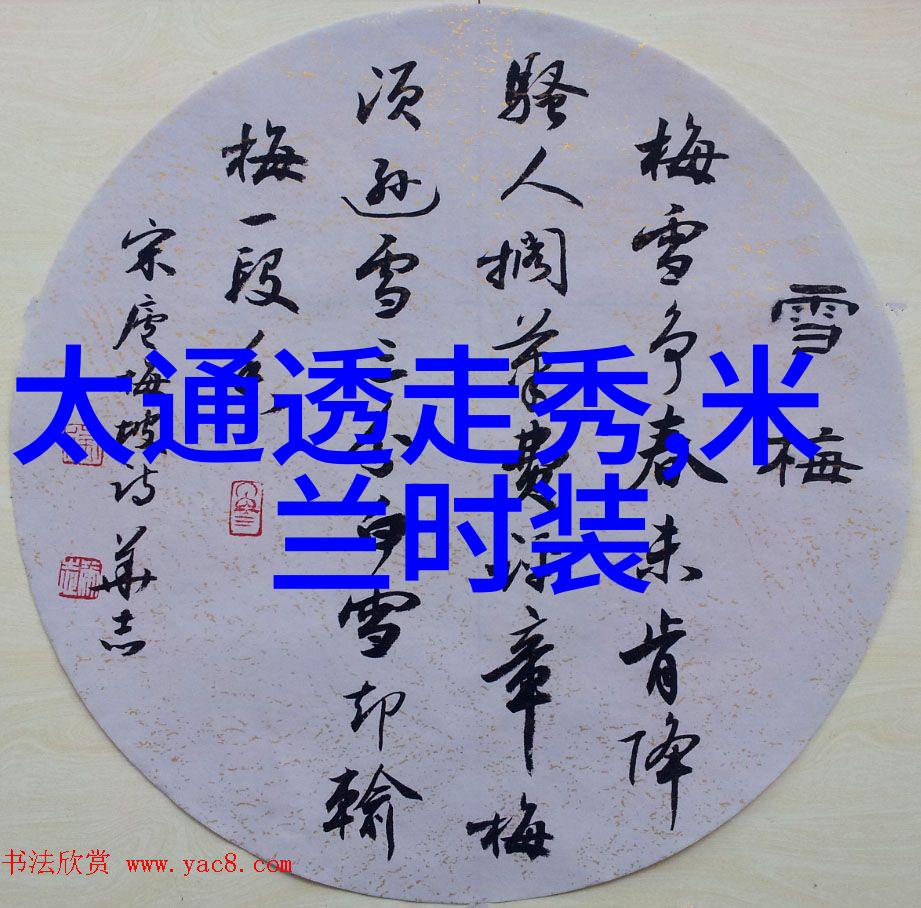 雪梅
梅雪争春未肯降
骚人搁筆費评章梅
须逊雪三分白雪却輸
梅一段香
宋廬梅坡诗 華志
太通透走秀,米
兰时装
书法欣赏 www.yac8.com